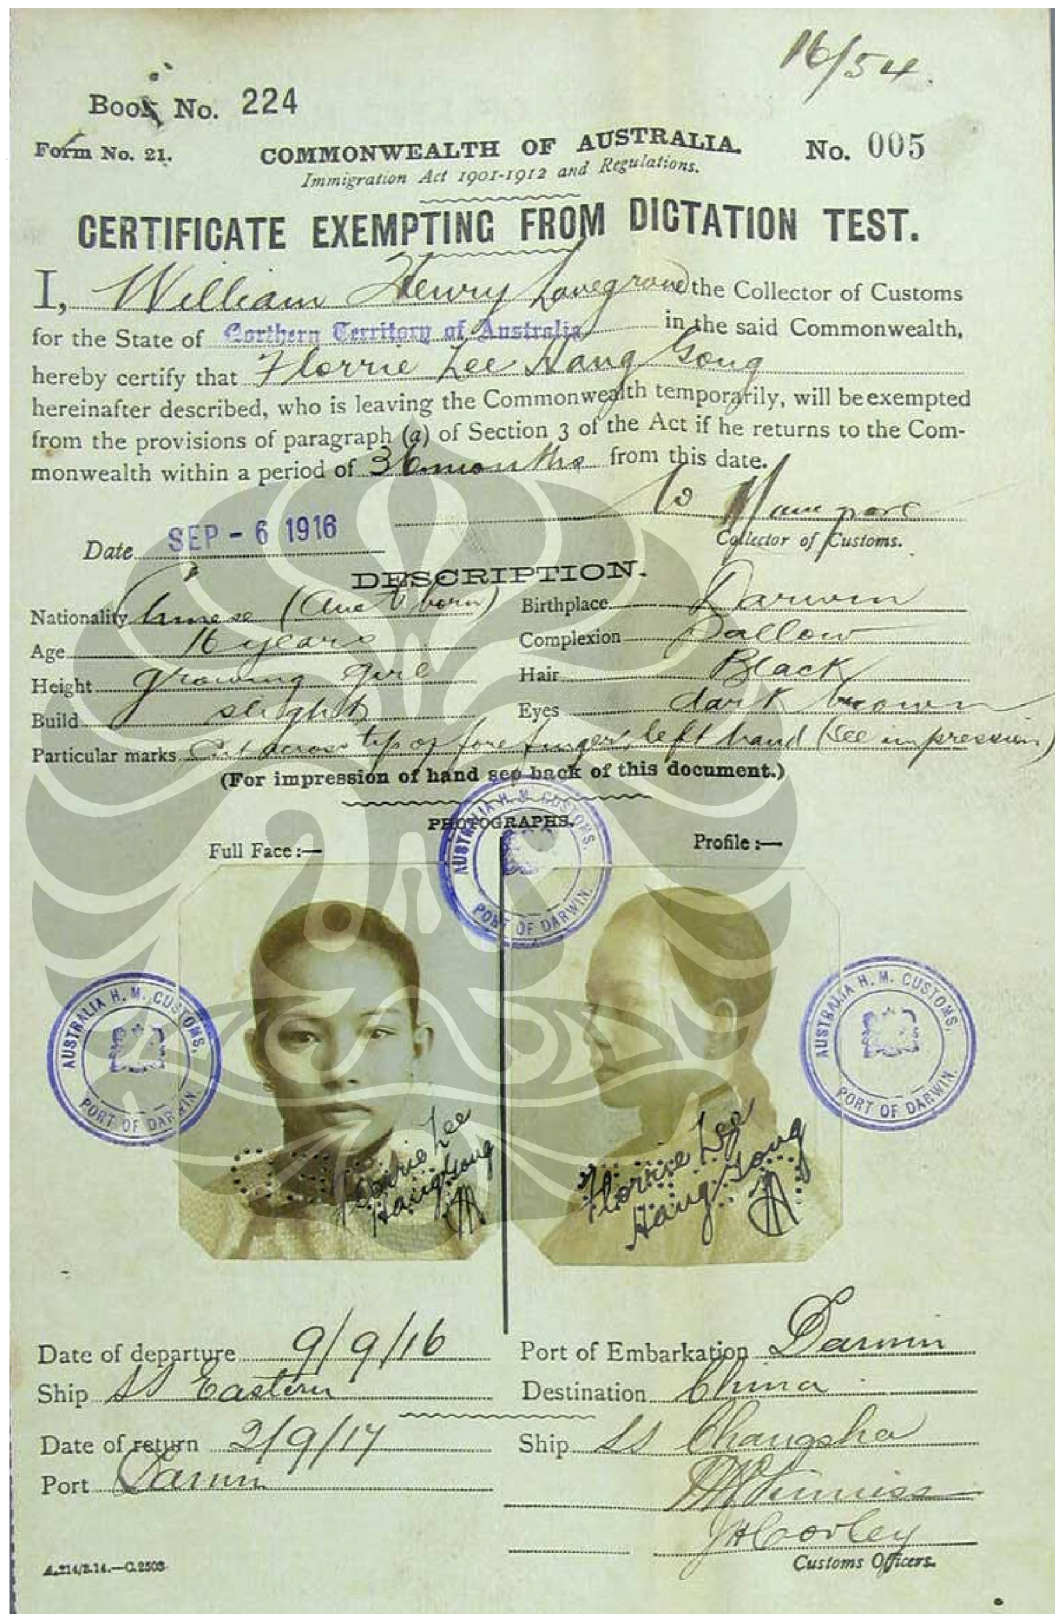 16/54.
Book No. 224
Form No. 21.
COMMONWEALTH OF AUSTRALIA.
No. 005
Immigration Act 1901-1912 and Regulations.
CERTIFICATE EXEMPTING FROM DICTATION TEST.
I, William Henry Lovegrove the Collector of Customs
for the State of Northern Territory of Australia in the said Commonwealth,
hereby certify that Florrie Lee Hang Gong
hereinafter described, who is leaving the Commonwealth temporarily, will be exempted
from the provisions of paragraph (a) of Section 3 of the Act if he returns to the Com-
monwealth within a period of 36 months from this date.
Date SEP - 6 1916
Collector of Customs.
DESCRIPTION.
Nationality Chinese (Aust born) Birthplace Darwin
Age 16 years Complexion Sallow
Height growing girl Hair Black
Build slight Eyes dark brown
Particular marks Cut across tip of fore finger left hand (See impression)
(For impression of hand see back of this document.)
PHOTOGRAPHS.
Full Face :— Profile :—
AUSTRALIA H. M. CUSTOMS. PORT OF DARWIN.
AUSTRALIA H. M. CUSTOMS. PORT OF DARWIN.
AUSTRALIA H. M. CUSTOMS. PORT OF DARWIN.
Florrie Lee
Hang Gong
Florrie Lee
Hang Gong
Date of departure 9/9/16 Port of Embarkation Darwin
Ship SS Eastern Destination China
Date of return 2/9/17 Ship SS Changsha
Port Darwin
Customs Officers.
A.214/2.14.—C.2503